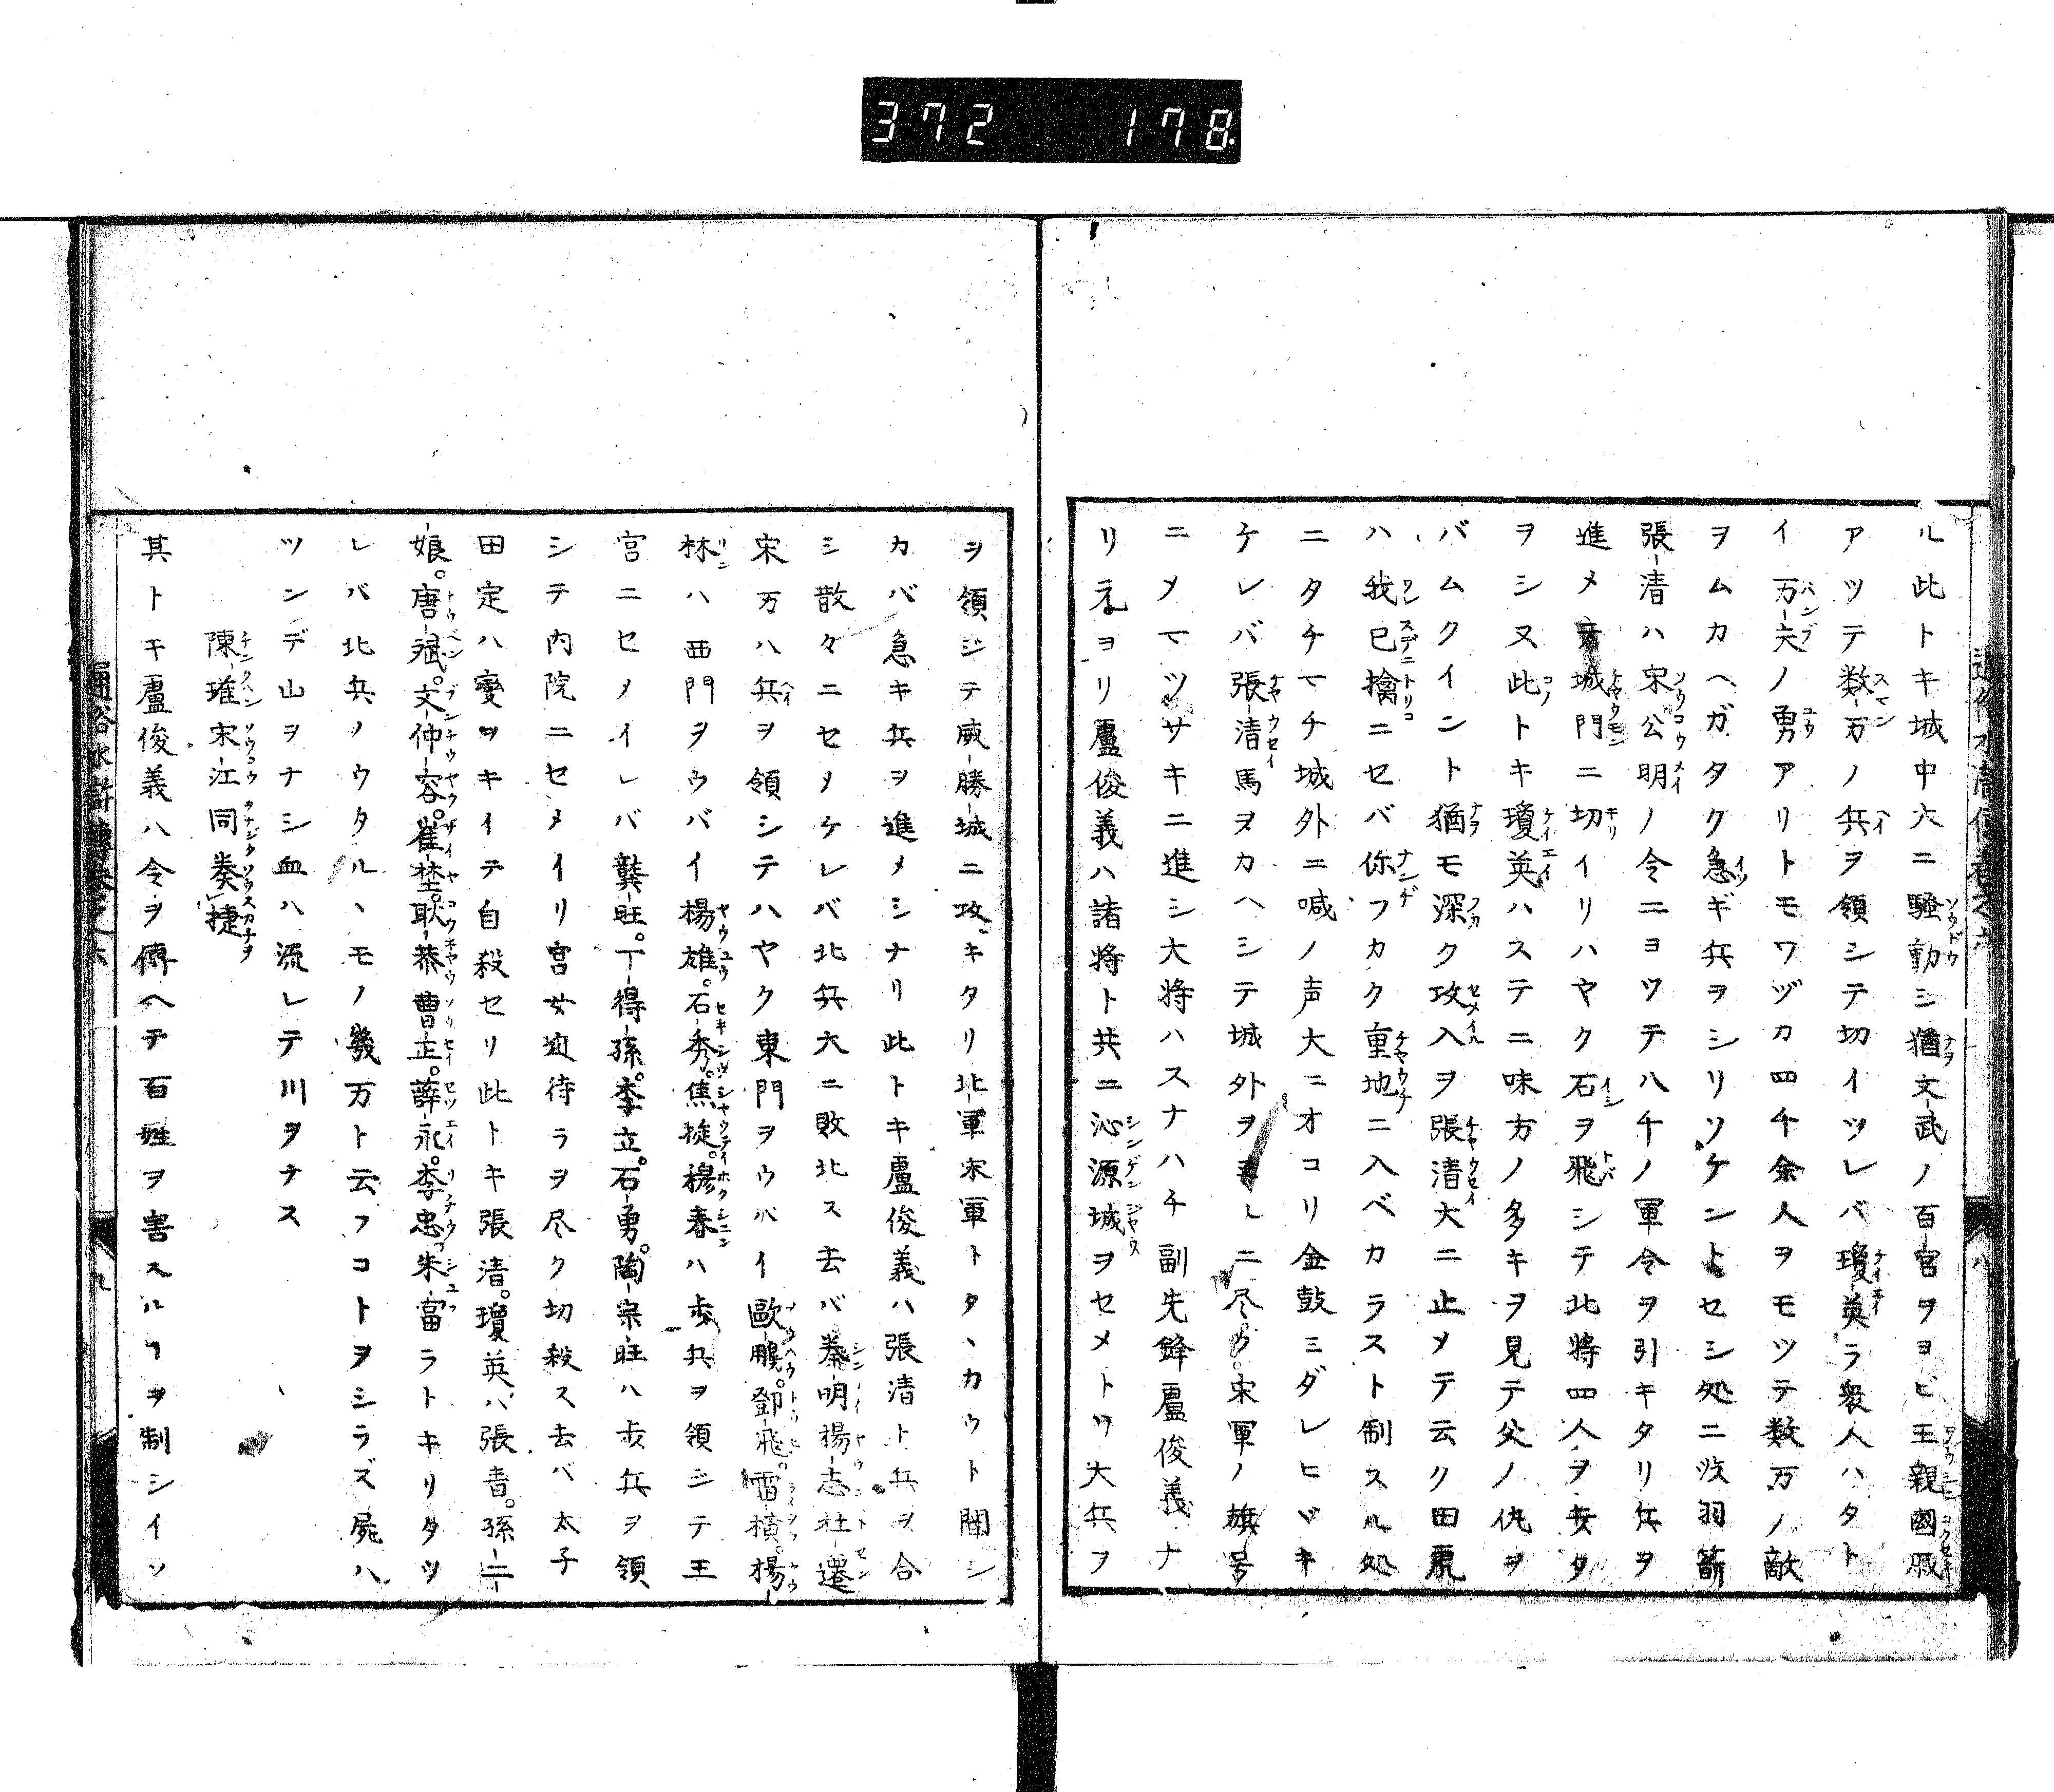 372 178
ル此トキ城中大ニ騒動シ猶文武ノ百官ヲヨビ王親國戚
アツテ数万ノ兵ヲ領シテ切イツレバ瓊英ラ衆人ハタト
イ万夫ノ勇アリトモワヅカ四千余人ヲモツテ数万ノ敵
ヲムカヘガタク急ギ兵ヲシリソケントセシ処ニ沒羽箭
張清ハ宋公明ノ令ニヨツテ八千ノ軍令ヲ引キタリ兵ヲ
進メ 城門ニ切イリハヤク石ヲ飛シテ北将四人ヲ タ
ヲシ又此トキ瓊英ハステニ味方ノ多キヲ見テ父ノ仇ヲ
バムクイント猶モ深ク攻入ヲ張清大ニ止メテ云ク田虎
ハ我已擒ニセバ你フカク重地ニ入ベカラスト制スル処
ニタチマチ城外ニ喊ノ声大ニオコリ金鼓ミダレヒヾキ
ケレバ張清馬ヲカヘシテ城外ヲ ルニ尽ク宋軍ノ旗号
ニメマツサキニ進シ大将ハスナハチ副先鋒盧俊義ナ
リ元ヨリ盧俊義ハ諸将ト共ニ沁源城ヲセメトリ大兵ヲ
ヲ領ジテ威勝城ニ攻キタリ北軍宋軍トタヽカウト聞シ
カバ急キ兵ヲ進メシナリ此トキ盧俊義ハ張清ト兵ヲ合
シ散々ニセメケレバ北兵大ニ敗北ス去バ秦明楊志杜遷
宋万ハ兵ヲ領シテハヤク東門ヲウバイ歐鵬。鄧飛。雷横。楊
林ハ西門ヲウバイ楊雄。石秀。焦挺。穆春ハ歩兵ヲ領ジテ王
宮ニセメイレバ龔旺。丁得孫。李立。石勇。陶宗旺ハ歩兵ヲ領
シテ内院ニセメイリ宮女近待ラヲ尽ク切殺ス去バ太子
田定ハ變ヲキイテ自殺セリ此トキ張清。瓊英ハ張青。孫二
娘。唐斌。文仲容。崔埜。耿恭曹正。薛永。李忠。朱富ラトキリタツ
レバ北兵ノウタルヽモノ幾万ト云フコトヲシラズ屍ハ
ツンデ山ヲナシ血ハ流レテ川ヲナス
陳瓘宋江同奏捷
其トキ盧俊義ハ令ヲ傳ヘテ百姓ヲ害スルヿヲ制シイソ
通俗水滸傳巻之六
九